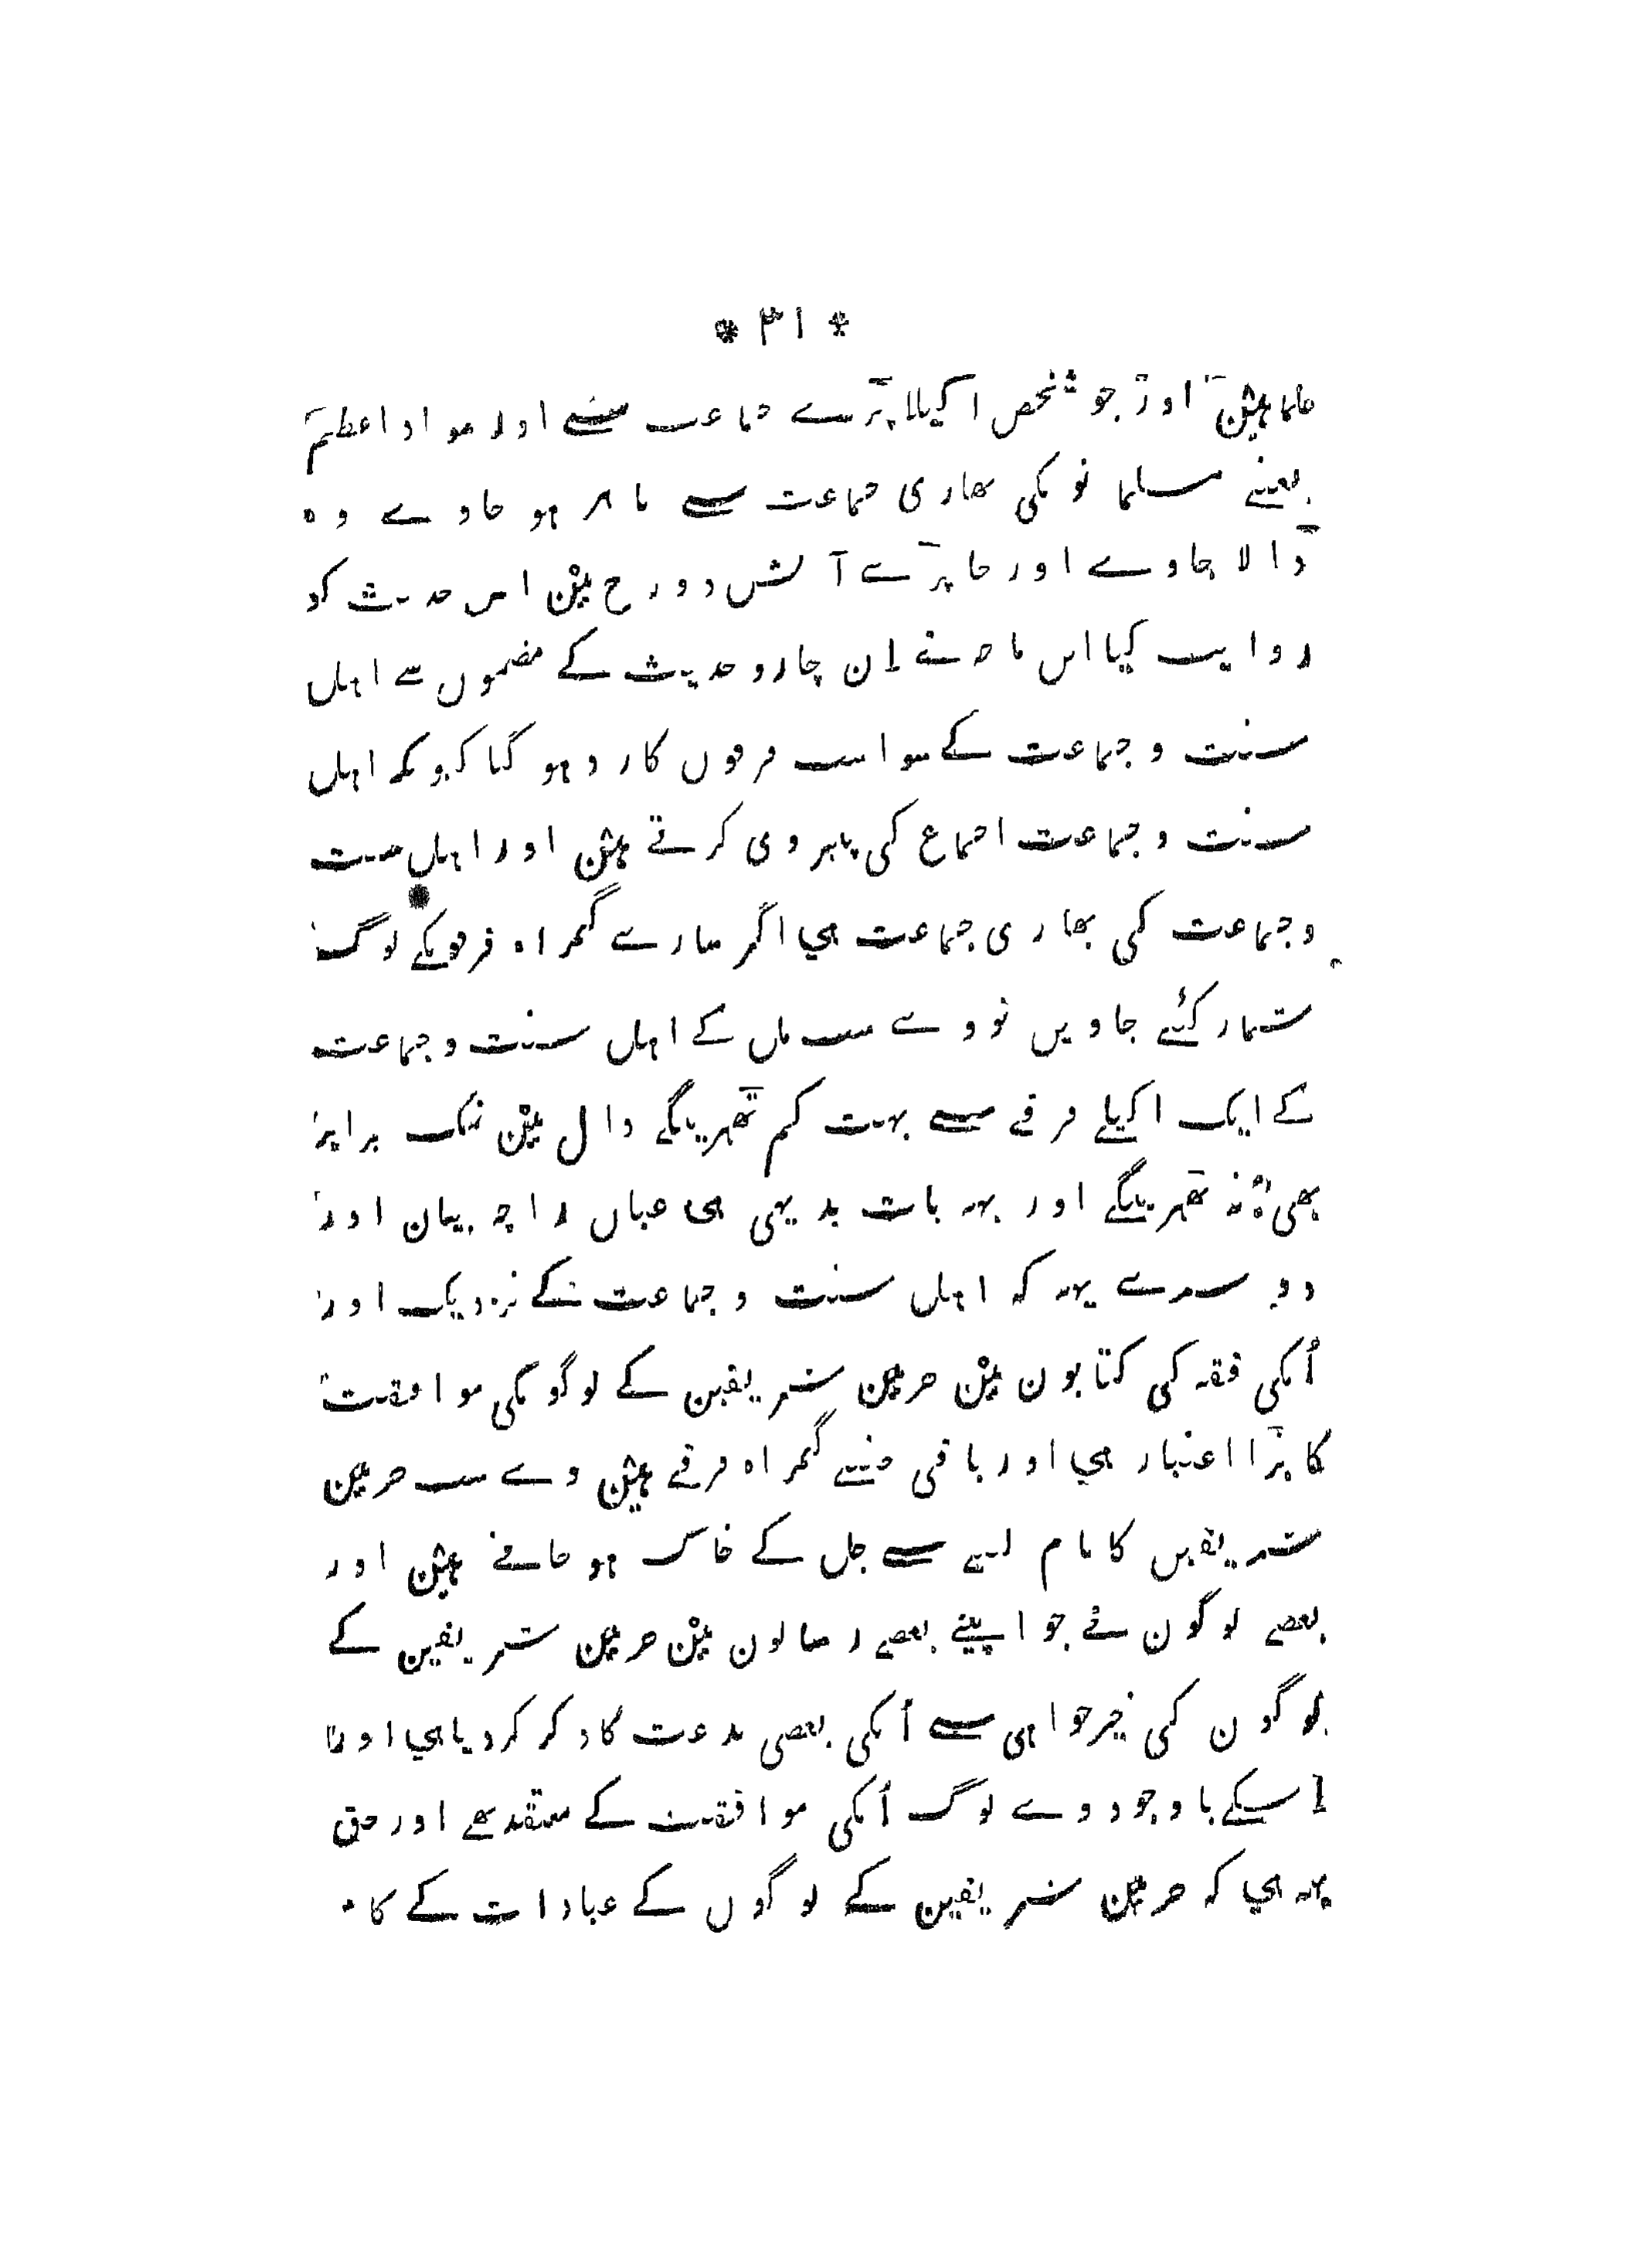 * ۳۱ *
علما هین اور جو شخص اکیلا پڑے جماعت سے اور سواد اعظم
یعنے مسلمانونکی بھاری جماعت سے باہر ہو جاوے وہ
ڈالا جاوے اور جا پڑے آتش دوزخ مین اس حدیث کو
روایت کیا ابن ماجہ نے اِن چارو حدیث کے مضموں سے اہل
سنت و جماعت کے سوا سب فرقوں کا رد ہو گیا کیونکہ اہل
سنت و جماعت اجماع کی پیروی کرتے هین اور اہل سنت
و جماعت کی بھاری جماعت هي اگر سارے گمراہ فرقونکے لوگ
شمار کئے جاویں تو وے سب مل کے اہل سنت و جماعت
کے ایک اکیلے فرقے سے بہت کم ٹھہرینگے دال مین نمک برابر
بھی نہ ٹھہرینگے اور یہہ بات بدیہی هی عیاں را چہ بیان اور
دوسرے یہہ کہ اہل سنت و جماعت کے نزدیک اور
اُنکی فقہ کی کتابون مین حرمین شریفین کے لوگونکی موافقت
کا بڑا اعتبار هي اور باقی جتنے گمراہ فرقے هین وے سب حرمین
شریفین کا نام لینے سے جل کے خاک ہو جاتے هین اور
بعضے لوگون نے جو اپنے بعضے رسالون مین حرمین شریفین کے
لوگون کی خیرخواہی سے اُنکی بعضی بدعت کا ذکر کر دیا هي اور
اِسکے باوجود وے لوگ اُنکی موافقت کے معتقد تھے اور حق
یہہ هي کہ حرمین شریفین کے لوگوں کے عبادات کے کا